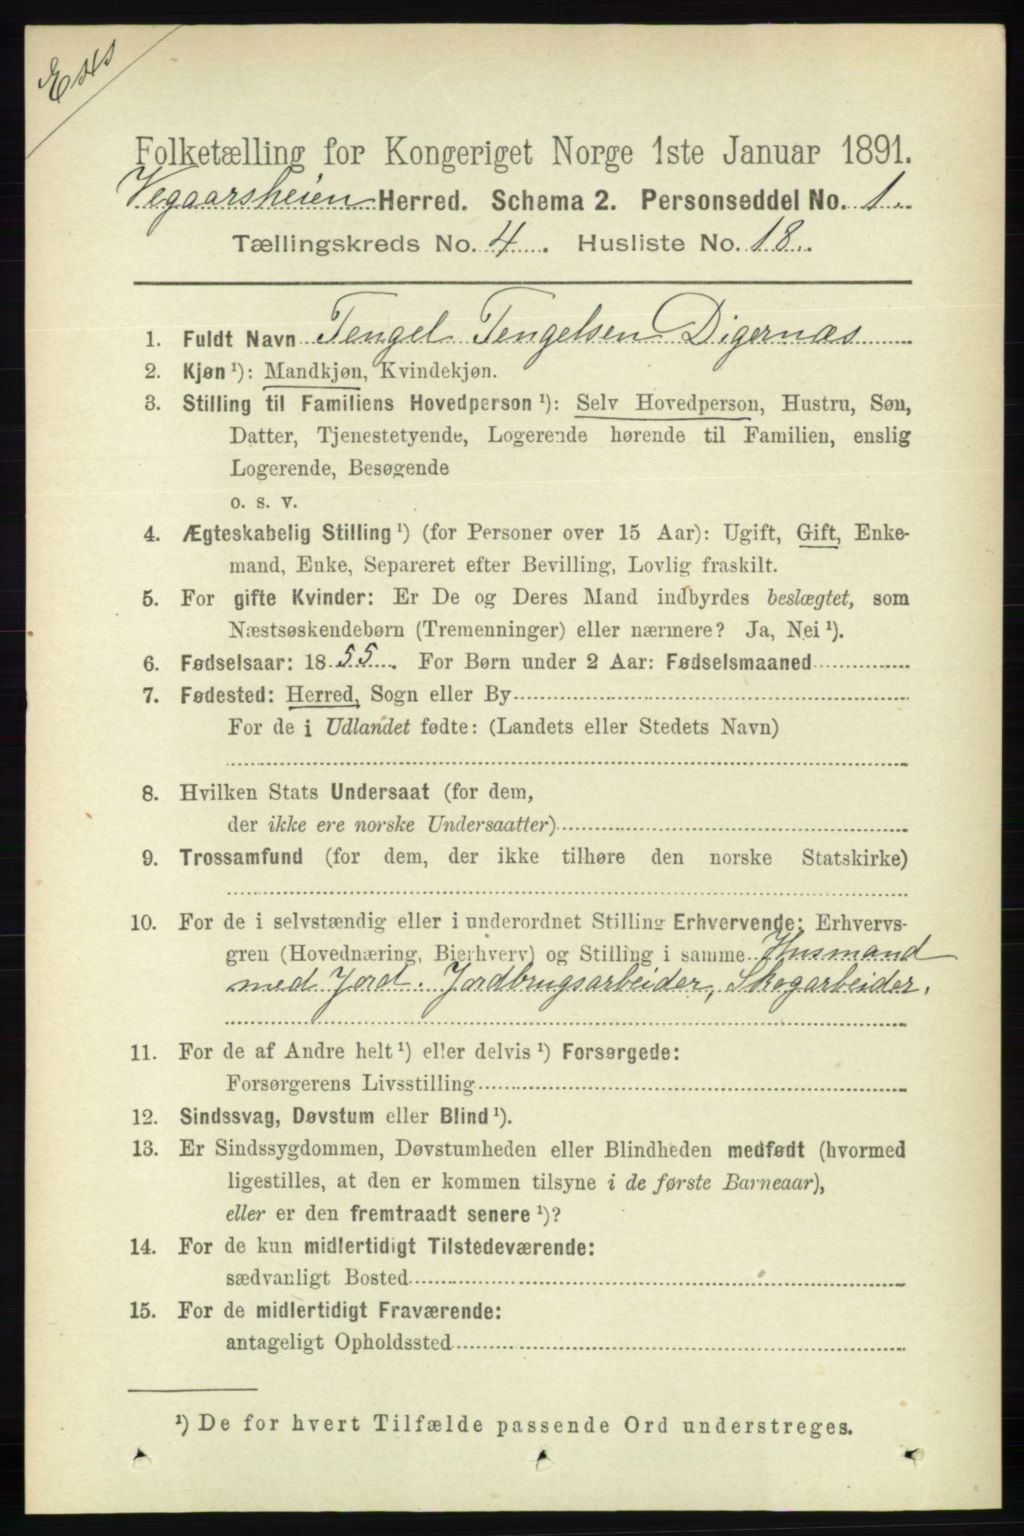 Folketælling for Kongeriget Norge 1ste Januar 1891.
Vegaarsheien Herred. Schema 2. Personseddel No. 1.
Tællingskreds No. 4. Husliste No. 18.
1. Fuldt Navn Tengel Tengelsen Digernæs
2. Kjøn ¹): Mandkjøn, Kvindekjøn.
3. Stilling til Familiens Hovedperson ¹): Selv Hovedperson, Hustru, Søn,
Datter, Tjenestetyende, Logerende hørende til Familien, enslig
Logerende, Besøgende
o. s. v.
4. Ægteskabelig Stilling ¹) (for Personer over 15 Aar): Ugift, Gift, Enke-
mand, Enke, Separeret efter Bevilling, Lovlig fraskilt.
5. For gifte Kvinder: Er De og Deres Mand indbyrdes beslægtet, som
Næstsøskendebørn (Tremenninger) eller nærmere? Ja, Nei ¹).
6. Fødselsaar: 1855. For Børn under 2 Aar: Fødselsmaaned
7. Fødested: Herred, Sogn eller By
For de i Udlandet fødte: (Landets eller Stedets Navn)
8. Hvilken Stats Undersaat (for dem,
der ikke ere norske Undersaatter)
9. Trossamfund (for dem, der ikke tilhøre den norske Statskirke)
10. For de i selvstændig eller i underordnet Stilling Erhvervende: Erhvervs-
gren (Hovednæring, Bierhverv) og Stilling i samme Husmand
med Jord. Jordbrugsarbeider, Skogarbeider.
11. For de af Andre helt ¹) eller delvis ¹) Forsørgede:
Forsørgerens Livsstilling
12. Sindssvag, Døvstum eller Blind ¹).
13. Er Sindssygdommen, Døvstumheden eller Blindheden medfødt (hvormed
ligestilles, at den er kommen tilsyne i de første Barneaar),
eller er den fremtraadt senere ¹)?
14. For de kun midlertidigt Tilstedeværende:
sædvanligt Bosted
15. For de midlertidigt Fraværende:
antageligt Opholdssted
¹) De for hvert Tilfælde passende Ord understreges.